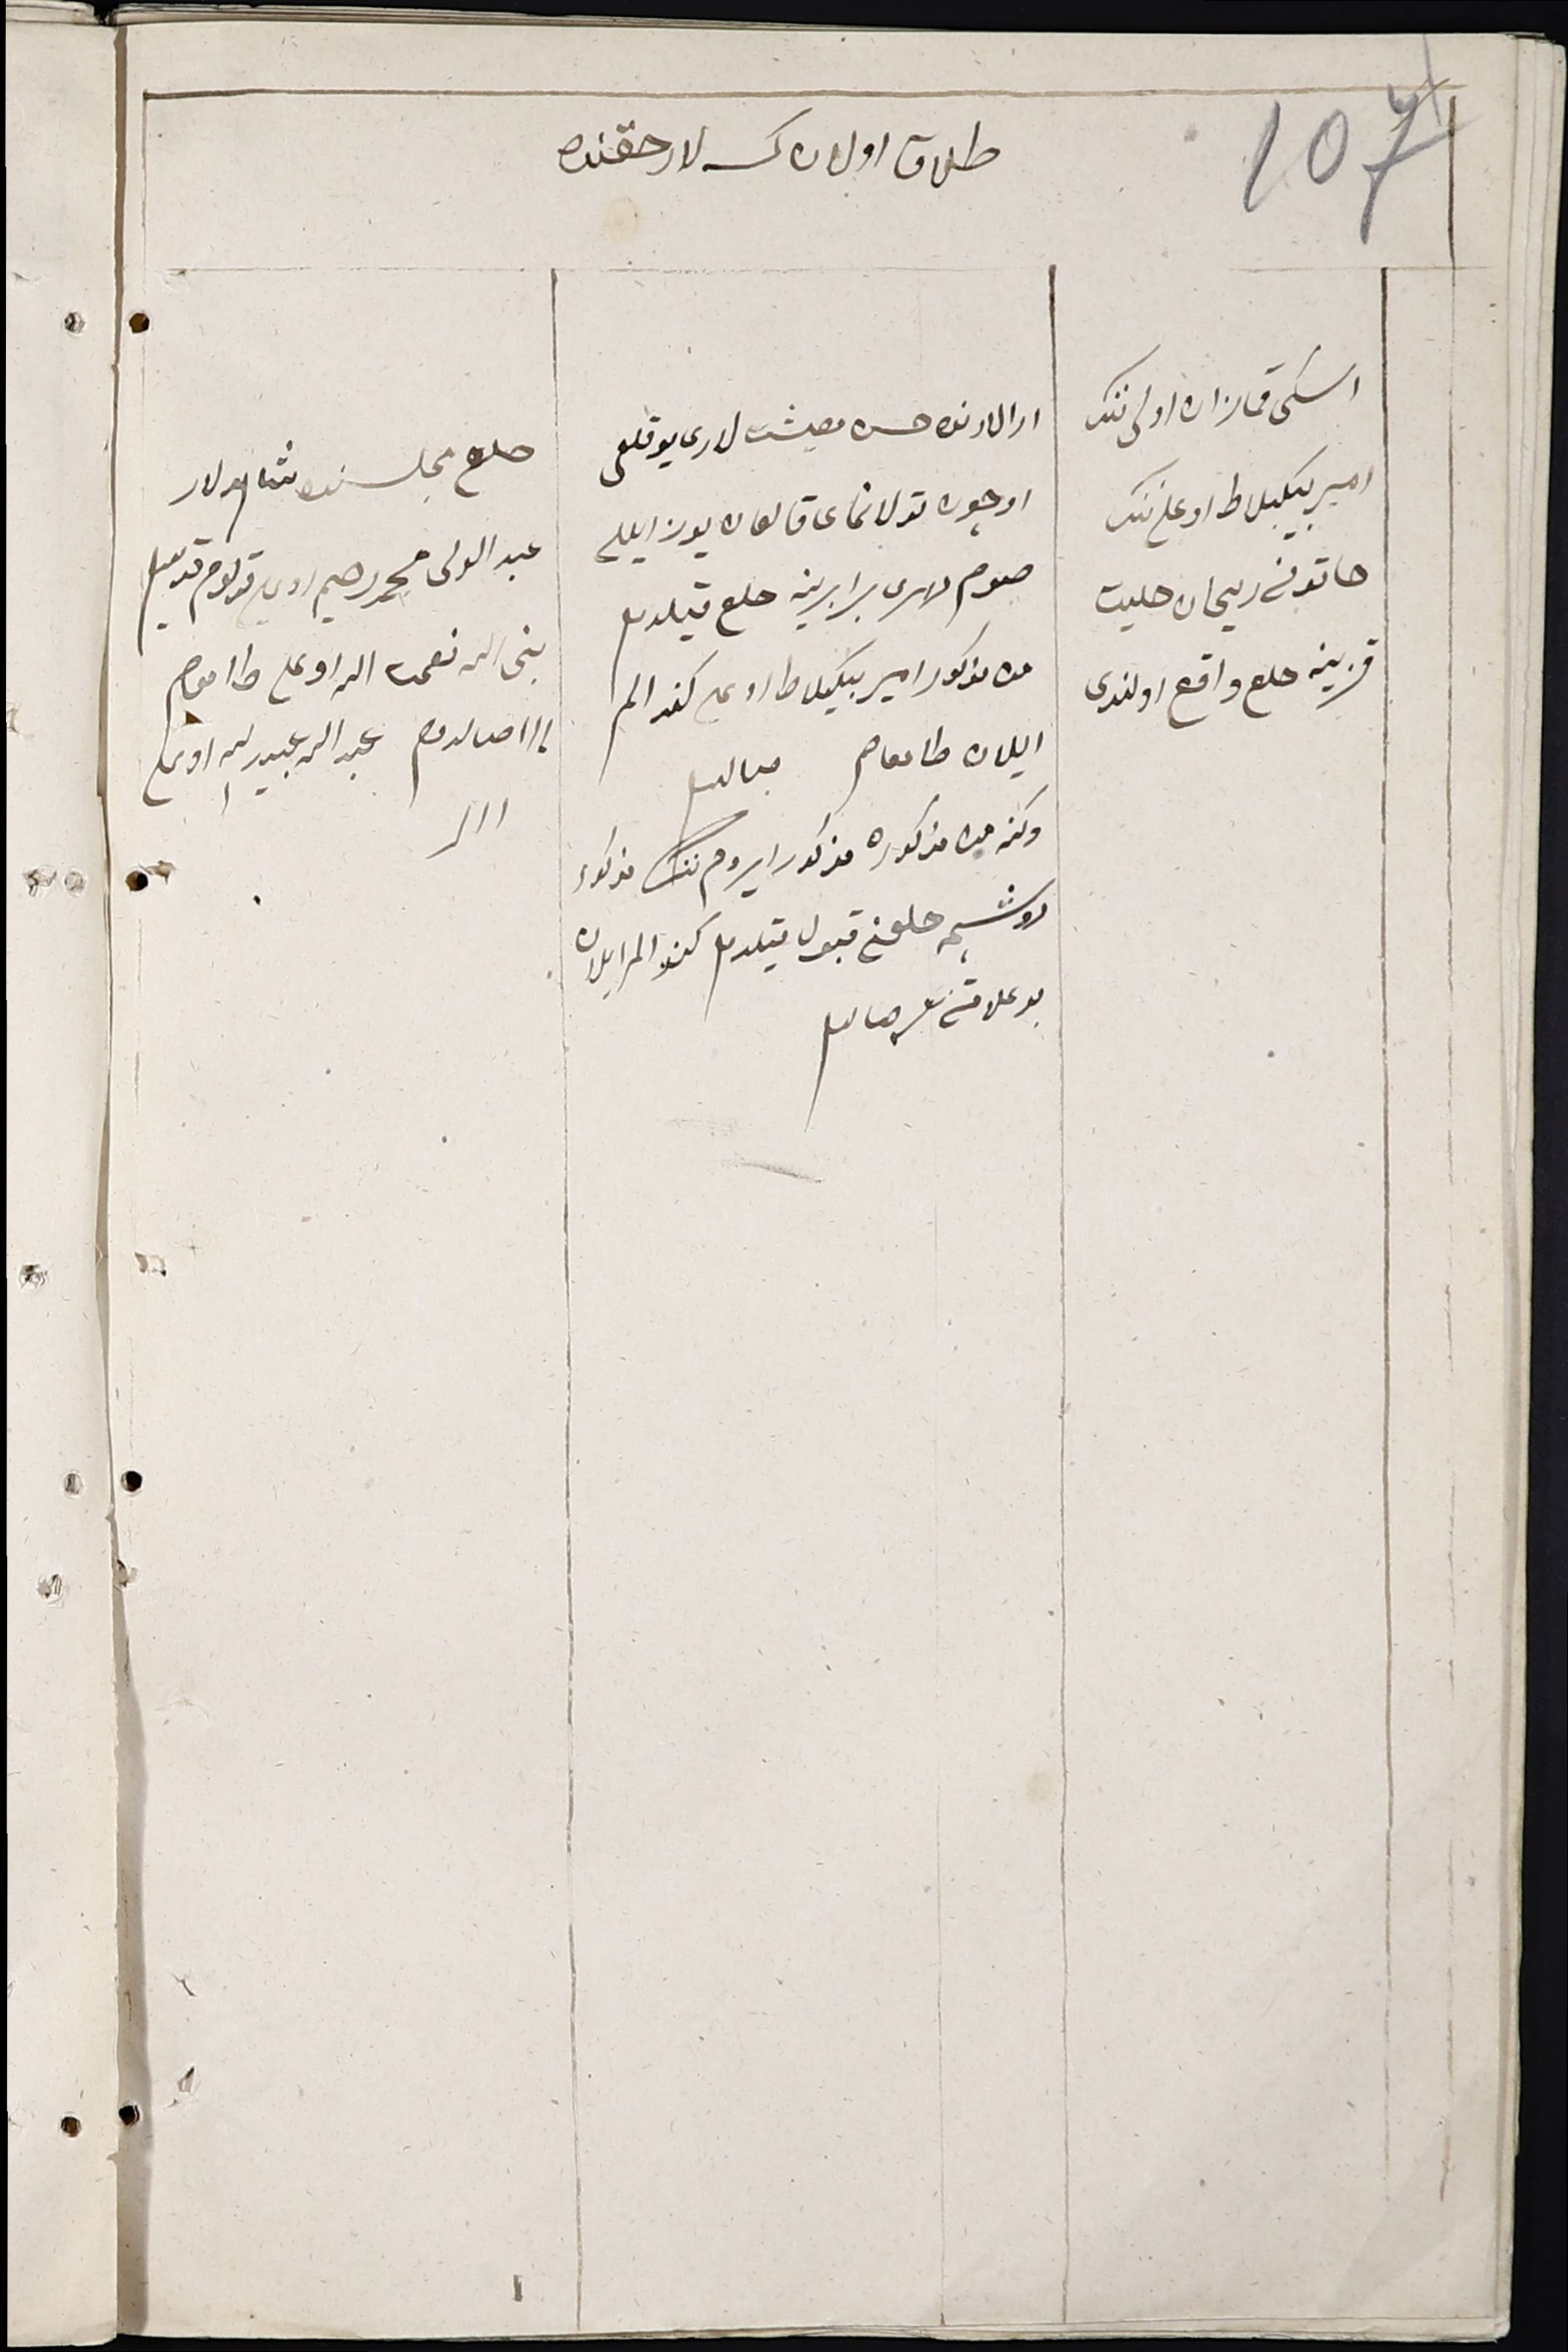 107
طلاق اولان کسه لار حقنده
اسکی قمازان اولی ننک
امیر بیکبلاط اوغلی ننک
خاتونی ریحان حلیت
قزینه خلع واقع اولندی
ارالارنده حسن معیشت لاری یوقلغی
اوچون تولانمای قالغان یوز ایللی
صوم مهری برابرینه خلع قیلدم
من مذکور امیر بیکبلاط اوغلی کندو الم
ایلان طامغام صالدم
وکنه من مذکوره مذکور ایروم ننک مذکور
روشیچه خلعنی قبول قیلدم کندو الم ایلان
بو علامتنی صالدم
خلع مجلسنده شاهدلار
عبد الولی محمدرحیم اوغلی قولوم قویدم
الله نعمت الله اوغلی طامغام
صالدم عبد الله عبید الله اوغلی